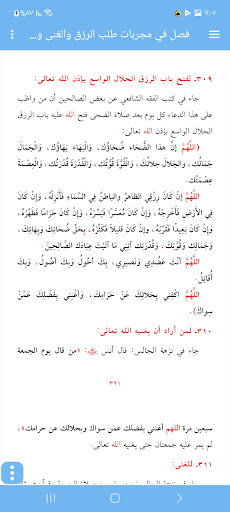 ٧:٠٥
٨٧٪
فصل في مجربات طلب الرزق والغنى و...
٣٠٩. لفتح باب الرزق الحلال الواسع بإذن الله تعالى:
جاء في كتب الفقه الشافعي عن بعض الصالحين أن من واظب
على هذا الدعاء كل يوم بعد صلاة الضحى فتح الله عليه باب الرزق
الحلال الواسع:
(اللَّهُمَّ إِنَّ هذا الضَّحَاءَ ضَحَاؤُكَ، وَالْبَهَاءَ بَهَاؤُكَ، وَالْجَمَالَ
جَمَالُكَ، وَالْجَلالَ جلالُكَ، وَالْقُوَّةَ قُوَّتُكَ، وَالْقُدْرَةَ قُدْرَتُكَ، وَالْعِصْمَةَ
عِصْمَتُكَ.
اللَّهُمَّ إِنْ كَانَ رِزْقِي الظاهِرُ والباطنُ في السَّمَاءِ فَأَنْزِلْهُ، وَإِنْ كَانَ
فِي الأَرْضِ فَأَخْرِجْهُ، وَإِنْ كَانَ مُعَسَّرًا فَيَسِّرْهُ، وَإِنْ كَانَ حَرَامًا فَطَهِّرْهُ،
وَإِنْ كَانَ بَعِيدًا فَقَرِّبْهُ، وَإِنْ كَانَ قليلاً فَكَثِّرْهُ، بِحَقِّ ضُحَائِكَ وَبِهَائِكَ،
وَجَمَالِكَ وَقُوَّتِكَ، وَقُدْرَتِكَ آتِنِي مَا آتَيْتَ عِبَادَكَ الصَّالحين.
اللَّهُمَّ أَنْتَ عَضُدِي وَنَصِيرِي، بِكَ أَحُولُ وَبِكَ أَصُولُ، وَبِكَ
أُقَاتِلُ.
اللَّهُمَّ اكفِنِي بِحَلالِكَ عَنْ حَرَامِكَ، وَأَغْنِنِي بِفَضْلِكَ عَمَّنْ
سِوَاكَ).
٣١٠. لمن أراد أن يغنيه الله تعالى:
جاء في نزهة المجالس: قال أنس: «من قال يوم الجمعة
٣٢١
سبعين مرة اللهم أغنني بفضلك عمن سواك وبحلالك عن حرامك»،
لم يمر عليه جمعتان حتى يغنيه الله تعالى.
٣١١. للغنى: